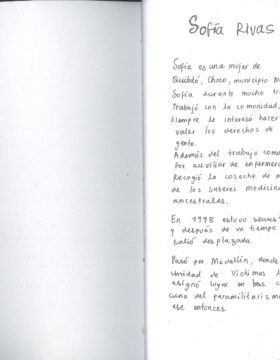 Sofía Rivas
Sofía es una mujer de
Quibdó, Choco, municipio
Sofía durante mucho
trabajó con la comunidad,
siempre le interesó hacer
valer los derechos de
gente.
Además del trabajo
fue auxiliar de
Recogió la cosecha de
de los saberes
ancestrales.
En 1998 estuvo
y después de un tiempo
salió desplazada.
Pasó por Medellín, donde
Unidad de Víctimas
asignó lugar en
cuna del
ese entonces